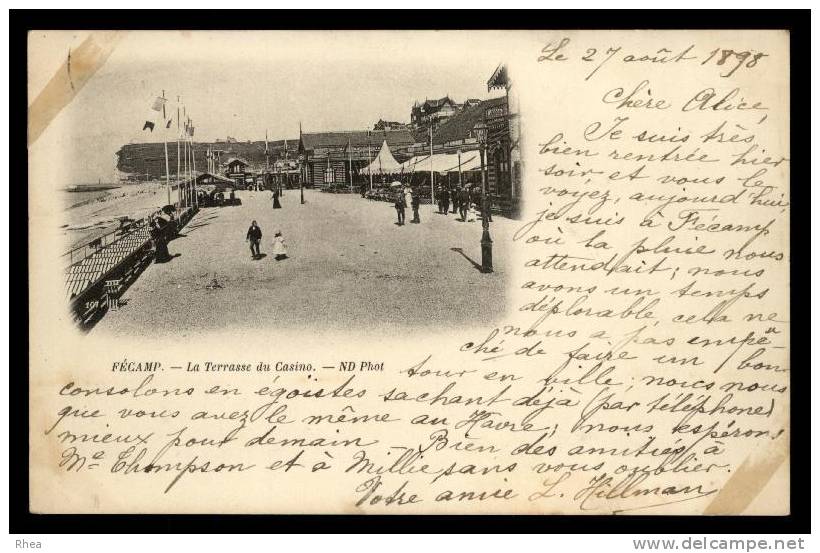 Le 27 août 1898
Chère Alice,
Je suis très
bien rentrée hier
soir et vous le
voyez, aujourd'hui,
je suis à Fécamp
où la pluie nous
attendait; nous
avons un temps
déplorable, cela ne
nous a pas empê-
ché de faire un bon
tour en ville; nous nous
consolons en égoistes sachant déjà (par téléphone)
que vous avez le même au Havre; nous espérons
mieux pour demain - Bien des amitiés à
Me Thompson et à Millie sans vous oublier.
Votre amie L. Hillman
107
FÉCAMP. — La Terrasse du Casino. — ND Phot
Rhea
www.delcampe.net